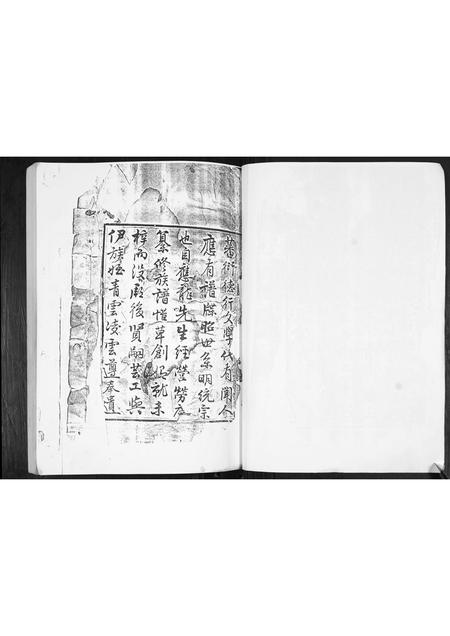 蕃衍德行文學代有聞人
應有譜牒昭世系明統宗
也自應龍先生經營勞
纂修族譜惜草創 就未
梓而沒厥後賢嗣芸工與
伊族姪青雲凌雲遵奉遺